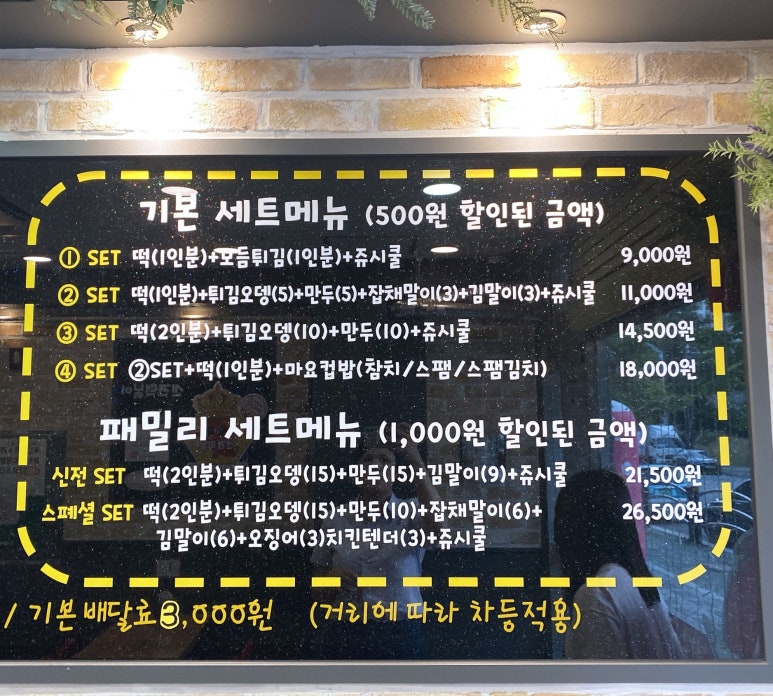 기본 세트메뉴 (500원 할인된 금액)
① SET 떡(1인분)+모듬튀김(1인분)+쥬시쿨 9,000원
② SET 떡(1인분)+튀김오뎅(5)+만두(5)+잡채말이(3)+김말이(3)+쥬시쿨 11,000원
③ SET 떡(2인분)+튀김오뎅(10)+만두(10)+쥬시쿨 14,500원
④ SET ②SET+떡(1인분)+마요컵밥(참치/스팸/스팸김치) 18,000원
패밀리 세트메뉴 (1,000원 할인된 금액)
신전 SET 떡(2인분)+튀김오뎅(15)+만두(15)+김말이(9)+쥬시쿨 21,500원
스페셜 SET 떡(2인분)+튀김오뎅(15)+만두(10)+잡채말이(6)+ 26,500원
김말이(6)+오징어(3)치킨텐더(3)+쥬시쿨
/ 기본 배달료 3,000원 (거리에 따라 차등적용)